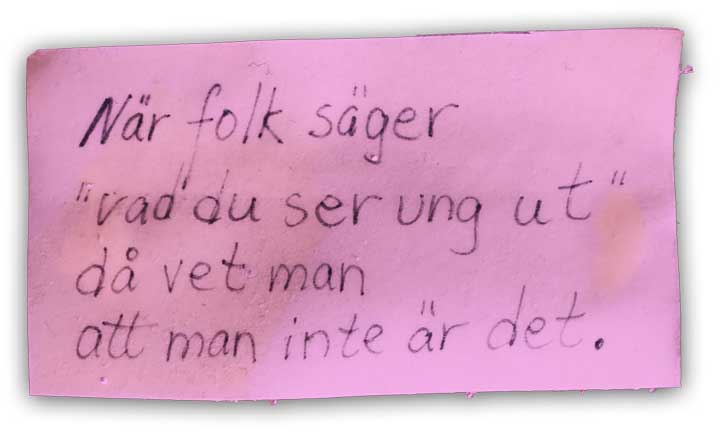 När folk säger
"vad du ser ung ut"
då vet man
att man inte är det.